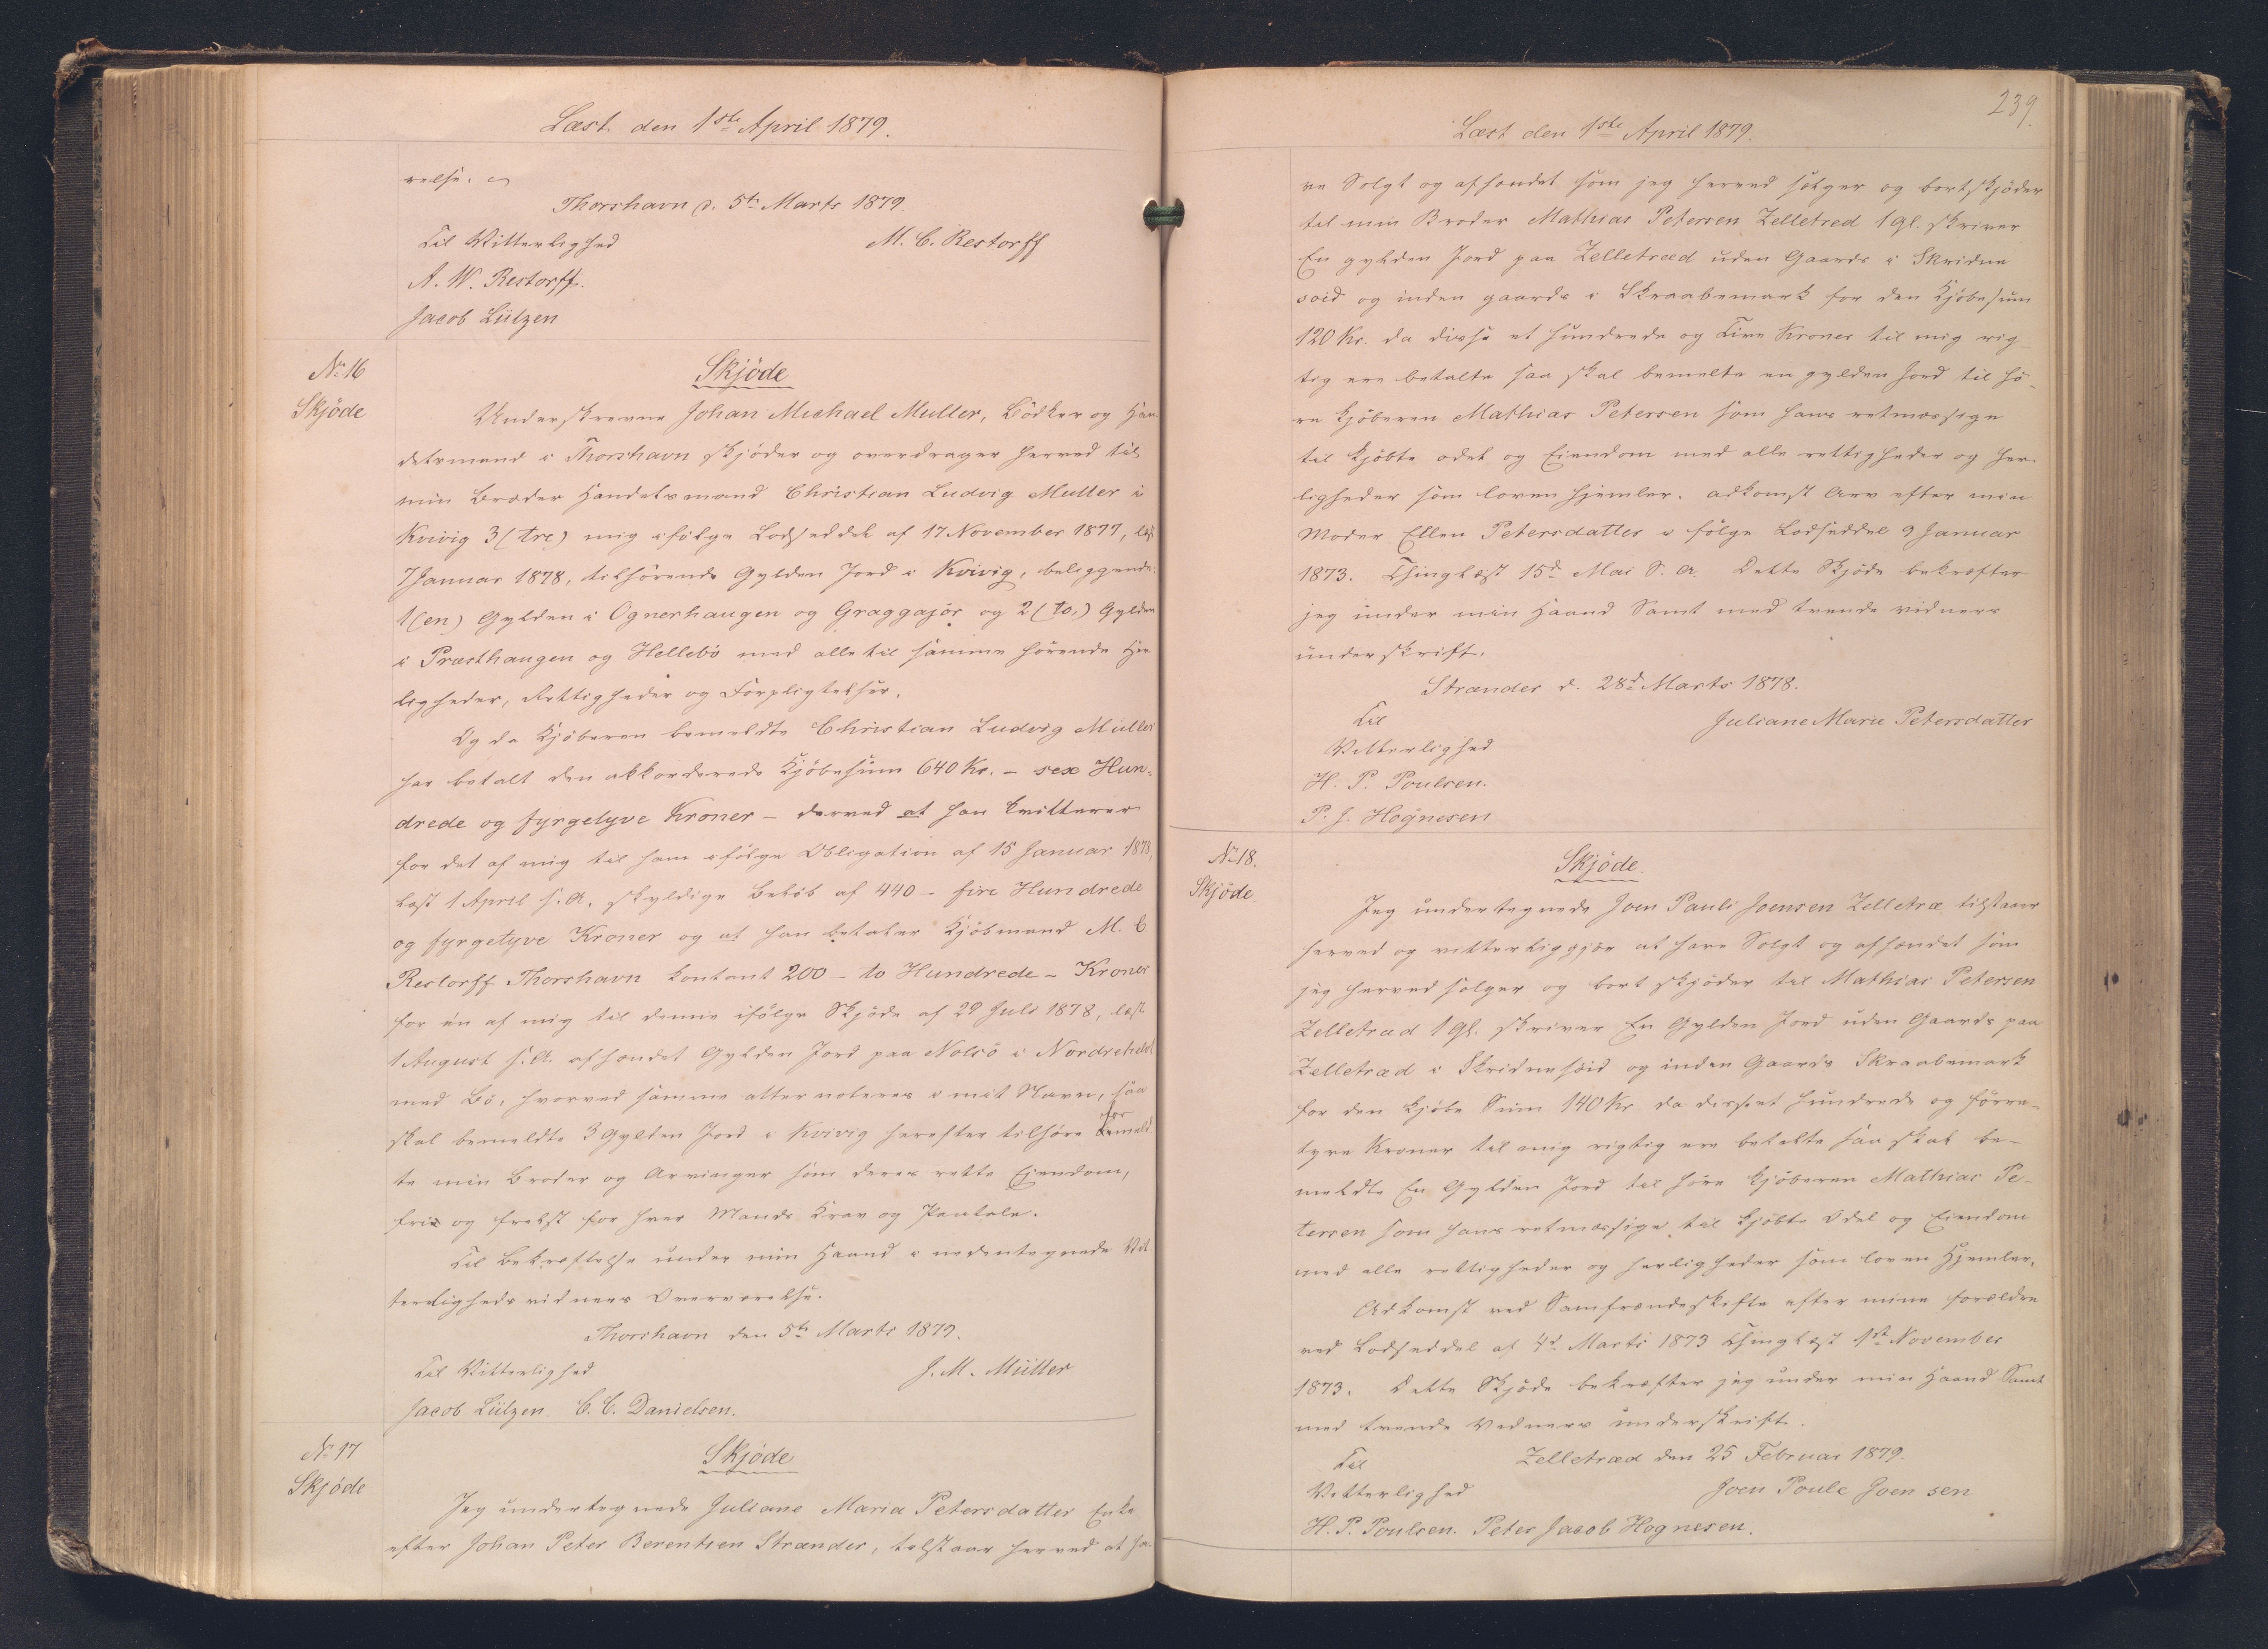 Læst den 1ste April 1879.
relse.
Thorshavn d. 5te Marts 1879.
Til Vitterlighed M. C. Restorff
A. W. Restorff.
Jacob Lützen
No 16
Skjöde
Skjöde
Underskrevne Johan Michael Muller, Bödker og Han
delsmand i Thorshavn skjöder og overdrager herved til
min Broder Handelsmand Christian Ludvig Muller i
Kvivig 3 (tre) mig ifölge Lodseddel af 17 November 1877, læst
7 Januar 1878, tilhörende Gylden Jord i Kvivig, beliggende:
1 (en) Gylden i Ognerhaugen og Graggajör og 2 (to,) Gylden
i Præsthaugen og Hellebö med alle til samme hörende Her
ligheder, Rettigheder og Forpligtelser.
Og da Kjöberen bemeldte Christian Ludvig Müller
har betalt den akkorderede Kjöbesum 640 Kr. – sex Hun-
drede og fyrgetyve Kroner – derved at han kvitterer
for det af mig til ham ifölge Obligation af 15 Januar 1878,
læst 1 April s. A. skyldige Belöb af 440 – fire Hundrede
og fyrgetyve Kroner og at han betaler Kjöbmand M. C
Restorff Thorshavn kontant 200 – to Hundrede – Kroner
for en af mig til denne ifölge Skjöde af 29 Juli 1878, læst
1 August s. A. afhændet Gylden Jord paa Nolsö i Nordrehelvt
med Bö, hvorved samme atter noteres i mit Navn, saa
skal bemeldte 3 Gylden Jord i Kvivig herefter tilhöre for
bemeld
te min Broder og Arvinger som deres rette Eiendom,
fri og frelst for hver Mands Krav og Paatale.
Til Bekræftelse under min Haand i nedentegnede Vit
terligheds vidners Overværelse.
Thorshavn den 5te Marts 1879.
Til Vitterlighed J. M. Müller
Jacob Lützen. C. C. Danielsen.
No 17
Skjöde
Skjöde
Jeg undertegnede Juliane Maria Petersdatter Enke
efter Johan Peter Berentsen Strænder, tilstaar herved at ha-
239.
Læst den 1ste April 1879.
ve Solgt og afhændet som jeg herved sælger og bortskjöder
til min Broder Mathias Petersen Zelletred 1 gl. skriver
En gylden Jord paa Zelletræd uden Gaards i Skridne
soid og inden gaards i Skraabemark for den Kjöbesum
120 Kr. da disse et hundrede og Tive Kroner til mig rig
tig ere betalte saa skal bemelte en gylden Jord til hö-
re kjöberen Mathias Petersen som hans retmæssige
til kjöbte odel og Eiendom med alle rettigheder og her-
ligheder som loven hjemler. adkomst Arv efter min
Moder Ellen Petersdatter i fölge Lodseddel 9 Januar
1873. Thinglæst 15d Mai S. A. Dette Skjöde bekræfter
jeg under min Haand Samt med tvende vidners
underskrift.
Strænder d. 28d Marts 1878.
Til Juliane Marie Petersdatter
Vitterlighed
H. P. Poulsen.
P. J. Högnesen
No 18.
Skjöde
Skjöde.
Jeg undertegnede Joen Pauli Joensen Zelletræ tilstaar
herved og vitterliggjör at have Solgt og afhændet som
jeg herved sælger og bort skjöder til Mathias Petersen
Zelletræd 1 Gl. skriver En Gylden Jord uden Gaards paa
Zelletræd i Skridnesoid og inden Gaards Skraabemark
for den kjöbe Sum 140 Kr da disse et hundrede og förre-
tyve Kroner til mig rigtig ere betalte saa skal be-
meldte En Gylden Jord til höre kjöberen Mathias Pe-
tersen som hans retmæssige til kjöbte Odel og Eiendom
med alle rettigheder og herligheder som loven Hjemler.
Adkomst ved Samfrændeskifte efter mine forældre
ved Lodseddel af 4d Marts 1873 Thinglæst 1st November
1873. Dette Skjöde bekræfter jeg under min Haand Samt
med tvende Vidners underskrift.
Til Zelletræd den 25 Februar 1879.
Vitterlighed Joen Poule Joensen
H. P. Poulsen. Peter Jacob Hognesen.